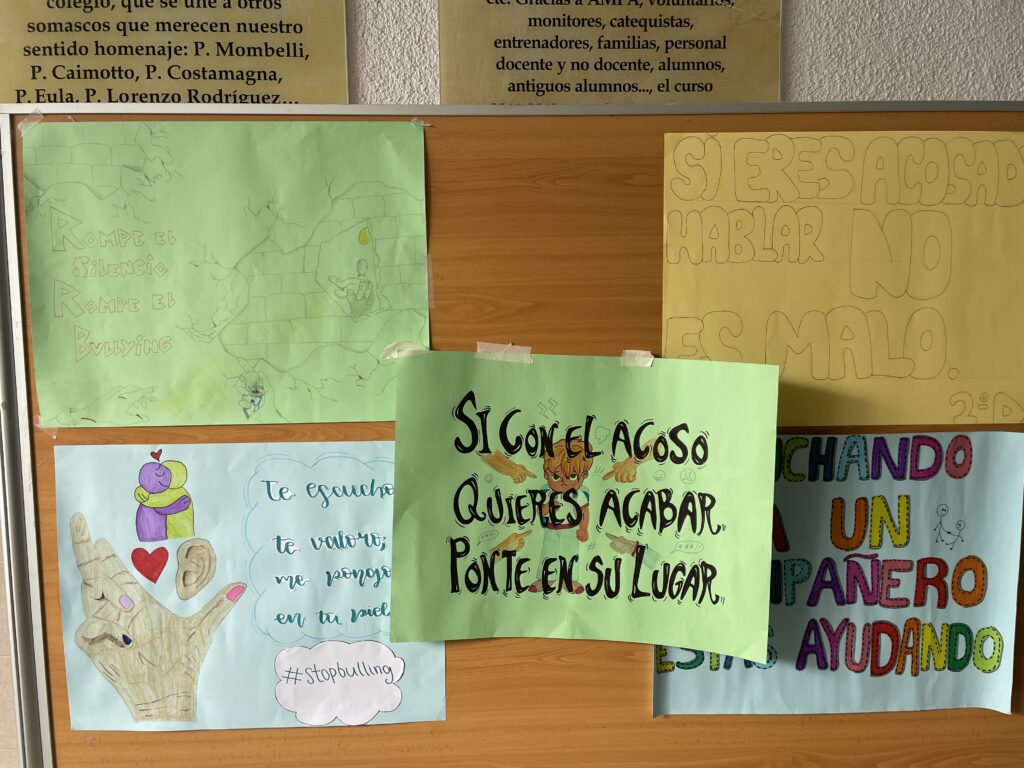 colegio, que se une a otros
somascos que merecen nuestro
sentido homenaje: P. Mombelli,
P. Caimotto, P. Costamagna,
P. Eula, P. Lorenzo Rodríguez...
etc. Gracias a AMPA, voluntarios,
monitores, catequistas,
entrenadores, familias, personal
docente y no docente, alumnos,
antiguos alumnos..., el curso
ROMPE EL
SILENCIO
ROMPE EL
BULLYING
SI ERES ACOSAD
HABLAR NO
ES MALO.
2ºD
SI CON EL ACOSO
QUIERES ACABAR
PONTE EN SU LUGAR.
Te escucho
te valoro,
me pongo
en tu piel
#stopbulling
UCHANDO
A UN
MPAÑERO
ESTÁS AYUDANDO